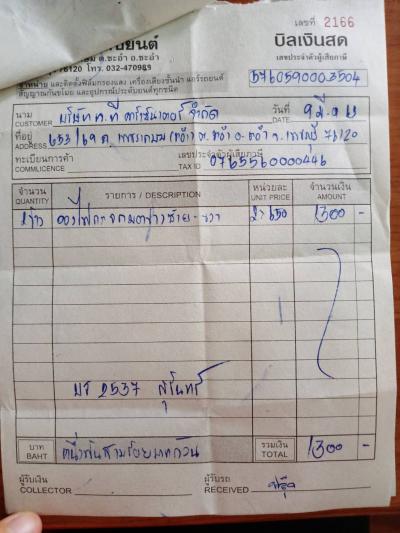 เลขที่ 2166
บิลเงินสด
ยนต์
ต.ชะอำ อ.ชะอำ
76120 โทร. 032-470989
เลขประจำตัวผู้เสียภาษี
3760590003504
จำหน่าย และติดตั้งฟิล์มกรองแสง เครื่องเสียงชั้นนำ แอร์รถยนต์
สัญญาณกันขโมย และอุปกรณ์ประดับยนต์ทุกชนิด
นาม
CUSTOMER บริษัท ที จำกัด
วันที่
DATE
ที่อยู่
ADDRESS 653/69 ถ. เพชรเกษม ต. ชะอำ อ. ชะอำ จ. เพชรบุรี 76120
ทะเบียนการค้า
COMMLICENCE
เลขประจำตัวผู้เสียภาษี
TAX ID 0765560000446
จำนวน
QUANTITY
รายการ / DESCRIPTION
หน่วยละ
UNIT PRICE
จำนวนเงิน
AMOUNT
ซ้าย - ขวา 650 1300 -
2537 สุรินทร์
บาท
BAHT หนึ่งพันสามร้อยบาทถ้วน
รวมเงิน
TOTAL 1300 -
ผู้รับเงิน
COLLECTOR
ผู้รับรถ
RECEIVED